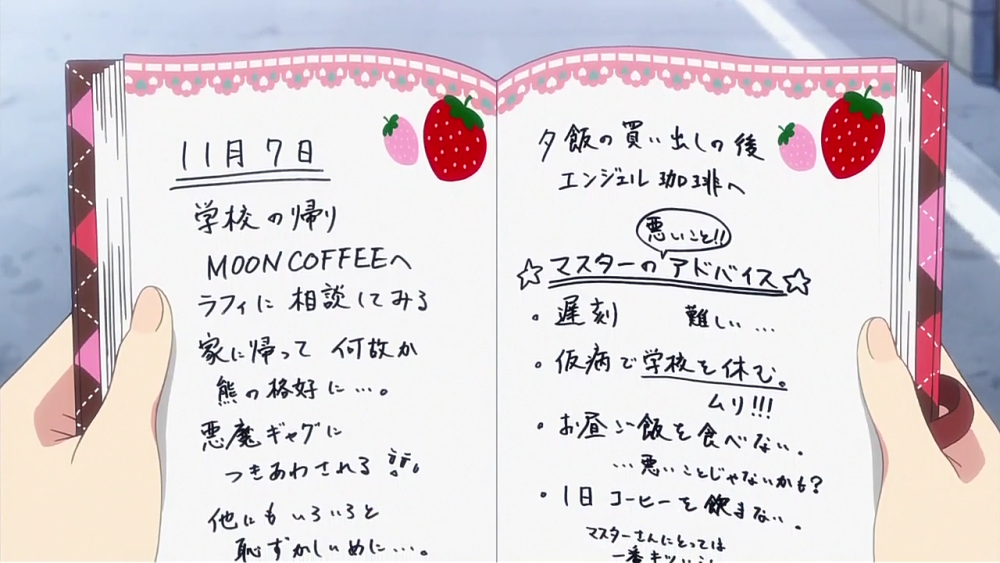 11月7日
学校の帰り
MOON COFFEEへ
ラフィに相談してみる
家に帰って 何故か
熊の格好に…。
悪魔ギャグに
つきあわされる
他にもいろいろと
恥ずかしいめに…。
夕飯の買い出しの後
エンジェル珈琲へ
悪いこと!!
☆マスターのアドバイス☆
・遅刻 難しい…
・仮病で学校を休む。
ムリ!!!
・お昼ご飯を食べない。
…悪いことじゃないかも?
・1日コーヒーを飲まない。
マスターさんにとっては
一番キツいらし